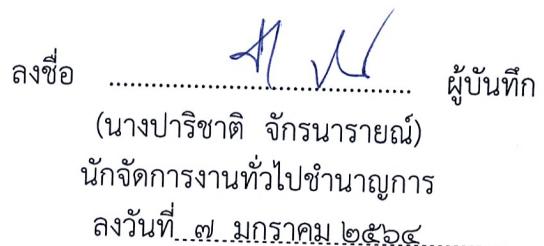 ลงชื่อ ........................................ ผู้บันทึก
(นางปาริชาติ จักรนารายณ์)
นักจัดการงานทั่วไปชำนาญการ
ลงวันที่ ๗ มกราคม ๒๕๖๔